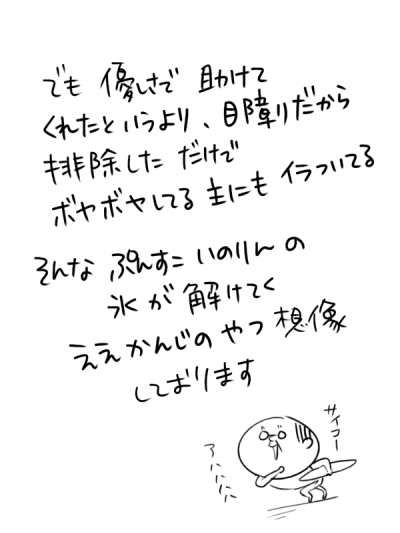 でも 優しさで 助けて
くれたというより、目障りだから
排除した だけで
ボヤボヤしてる 主にも イラついてる
そんな ぷんすこ いのりんの
氷が 解けてく
ええかんじのやつ 想像
しております
サイコー
アハハハハ